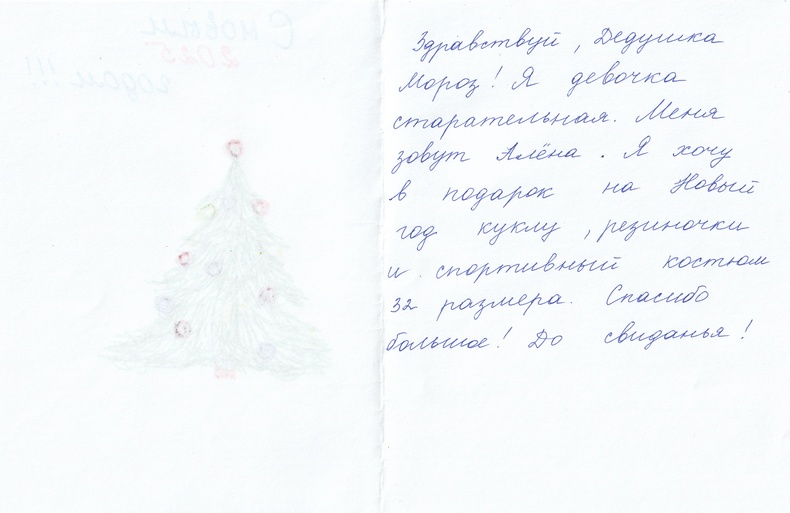 С новым
2025
годом!!!
Здравствуй, Дедушка
Мороз! Я девочка
старательная. Меня
зовут Алёна. Я хочу
в подарок на Новый
год куклу, резиночки
и спортивный костюм
32 размера. Спасибо
большое! До свиданья!